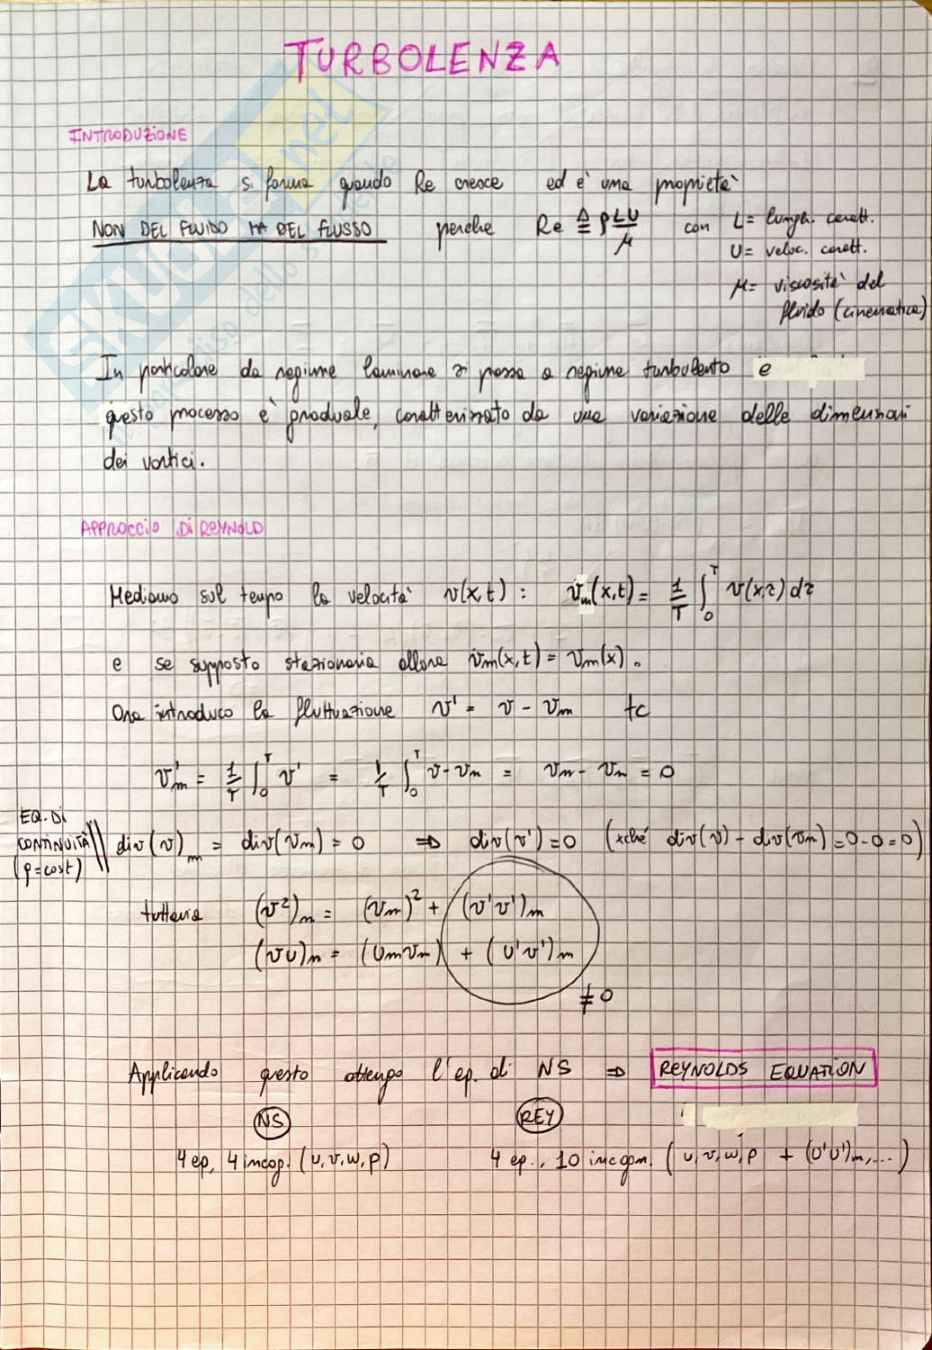 TURBOLENZA
INTRODUZIONE
La turbolenza si forma quando Re cresce ed e' una proprietà
NON DEL FLUIDO MA DEL FLUSSO perche Re ≜ ρ LU/μ con L= lungh. caratt.
U= veloc. caratt.
μ= viscosità del
fluido (cinematica)
In particolare da regime laminare si passa a regime turbolento e
questo processo e' graduale, caratterizzato da una variazione delle dimensioni
dei vortici.
APPROCCIO DI REYNOLD
Mediamo sul tempo la velocità v(x,t) : vm(x,t) = 1/T ∫₀ᵀ v(x,τ) dτ
e se supposto stazionaria allora vm(x,t) = vm(x).
Ora introduco la fluttuazione v' = v - vm tc
v'm = 1/T ∫₀ᵀ v' = 1/T ∫₀ᵀ v-vm = vm - vm = 0
EQ. DI
CONTINUITÀ
(ρ=cost)
div(v)m = div(vm) = 0 ⇒ div(v') = 0 (xché div(v) - div(vm) = 0-0=0)
tuttavia (v²)m = (vm)² + (v'v')m
(vu)m = (umvm) + (u'v')m
≠ 0
Applicando questo ottengo l'eq. di NS ⇒ REYNOLDS EQUATION
NS REY
4 eq, 4 incog. (u,v,w,p) 4 eq., 10 incogn. (u,v,w,p + (u'u')m,...)
SKUOLA.net